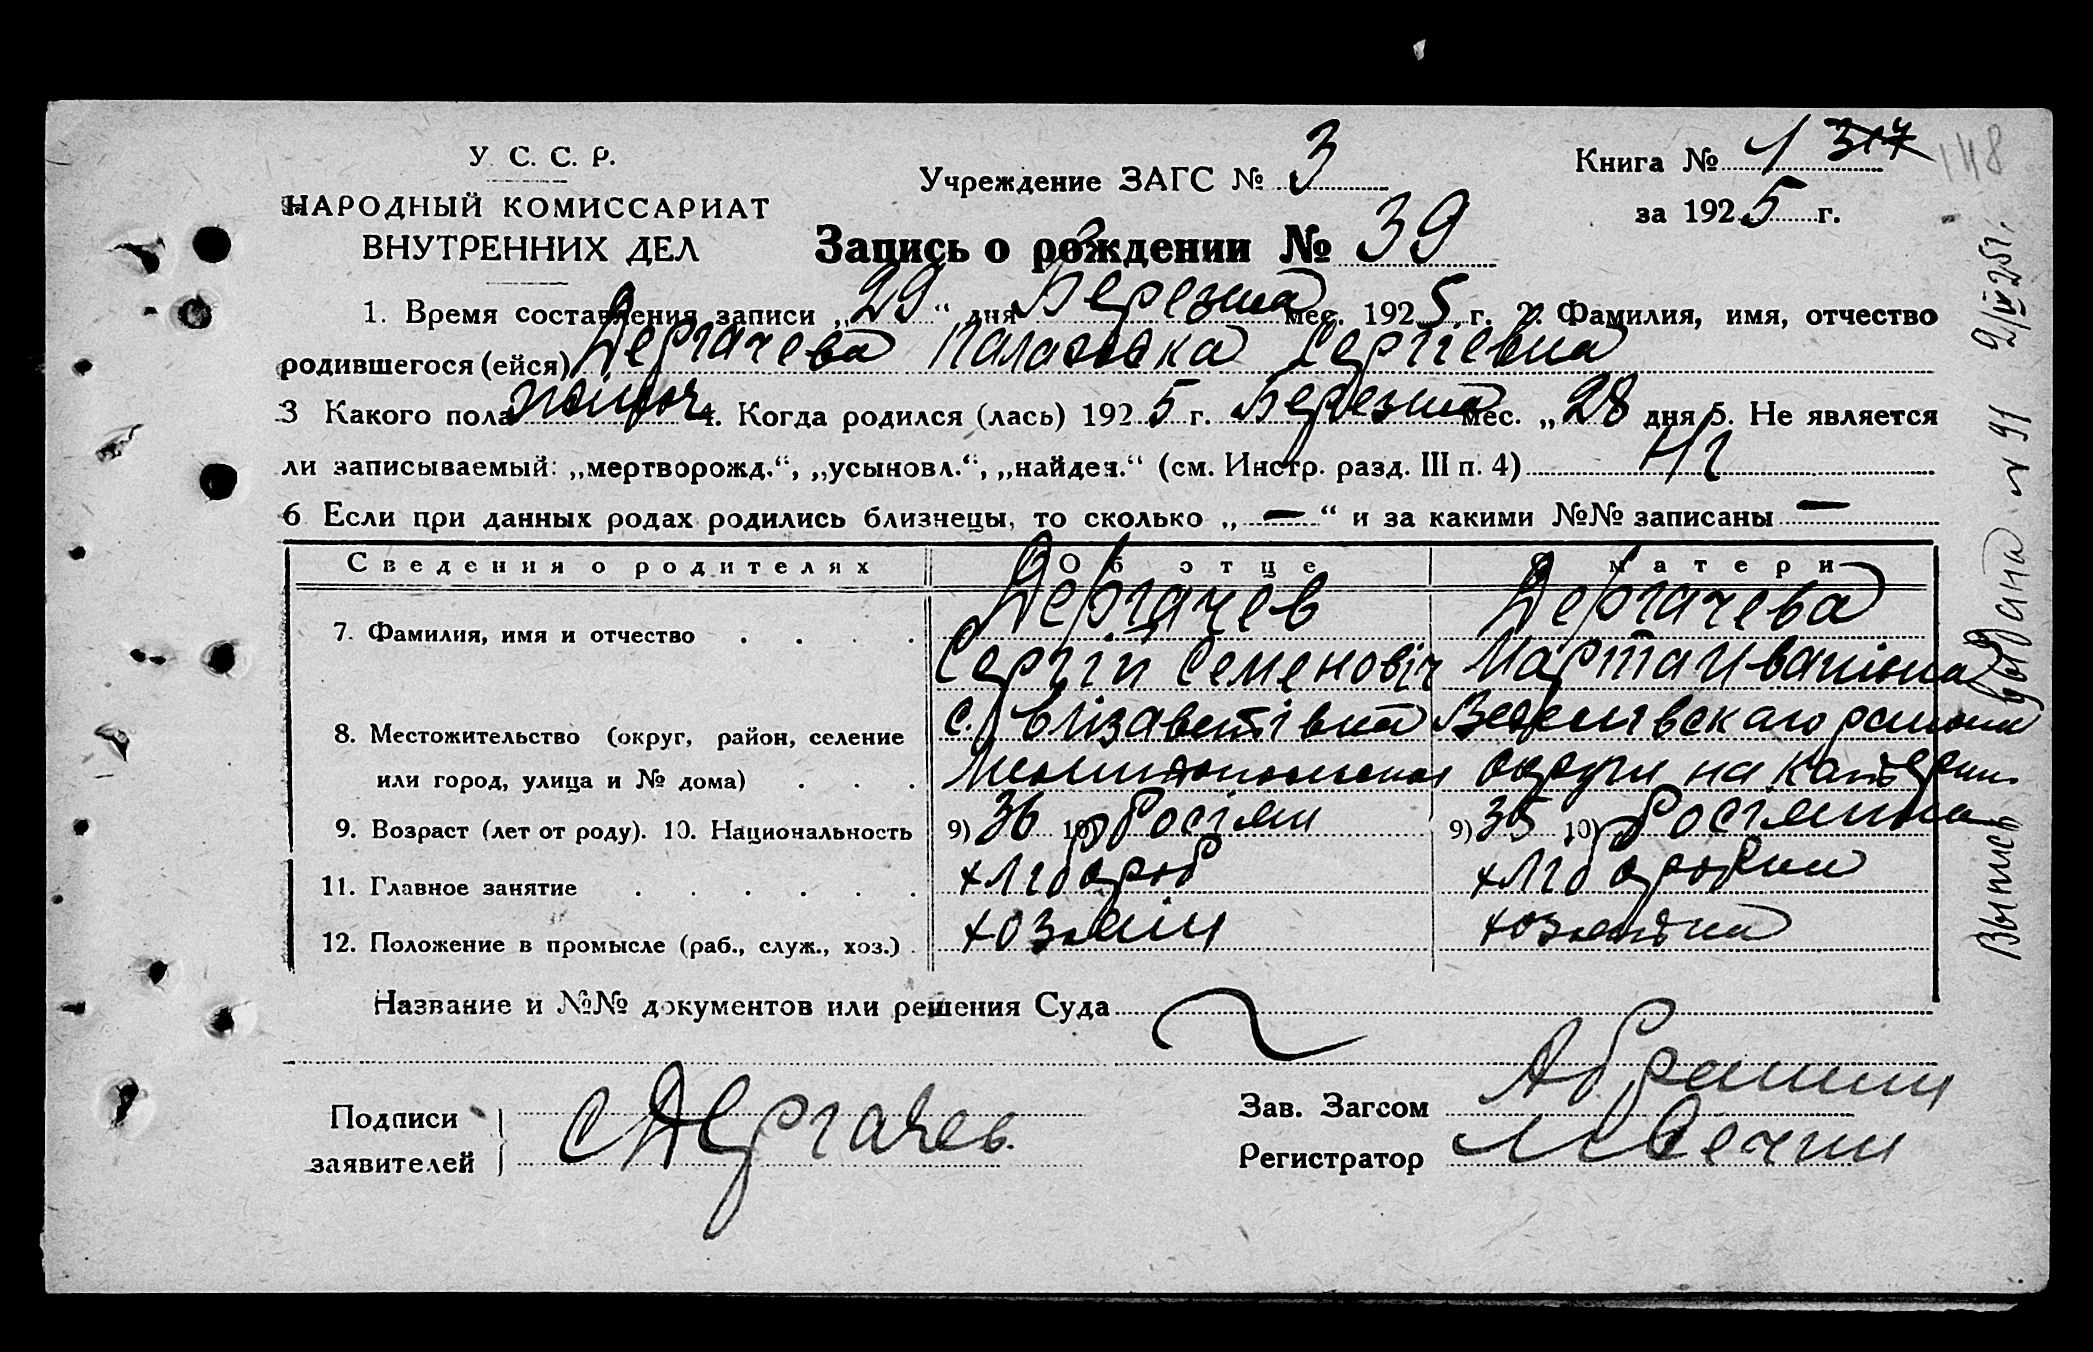 У. С. С. Р.
НАРОДНЫЙ КОМИССАРИАТ
ВНУТРЕННИХ ДЕЛ
Учреждение ЗАГС № 3
Книга № 1 317 148
за 1925 г.
Запись о рождении № 39
1. Время составления записи „29“ дня Березня мес. 1925 г. 2. Фамилия, имя, отчество
родившегося (ейся) Дергачева Сергіевна
3 Какого пола жіноч 4. Когда родился (лась) 1925 г. Березня мес. „28 дня 5. Не является
ли записываемый: „мертворожд.“, „усыновл.“, „найден.“ (см. Инстр. разд. III п. 4) Ні
6 Если при данных родах родились близнецы, то сколько „—“ и за какими №№ записаны —
Сведения о родителях Об отце О матери
7. Фамилия, имя и отчество Дергачев Дергачева
Сергій Семеновіч Марта Иванівна
8. Местожительство (округ, район, селение с. Елізаветівка району
или город, улица и № дома) округи на Катерин.
9. Возраст (лет от роду). 10. Национальность 9) 36 10) Росіян 9) 35 10) Росіянка
11. Главное занятие хлібороб хліборобка
12. Положение в промысле (раб., служ., хоз.) хозяїн хозяйка
Название и №№ документов или решения Суда
Подписи заявителей С Дергачев.
Зав. Загсом
Регистратор
Выпись выдана № 91 2/IV 25 г.